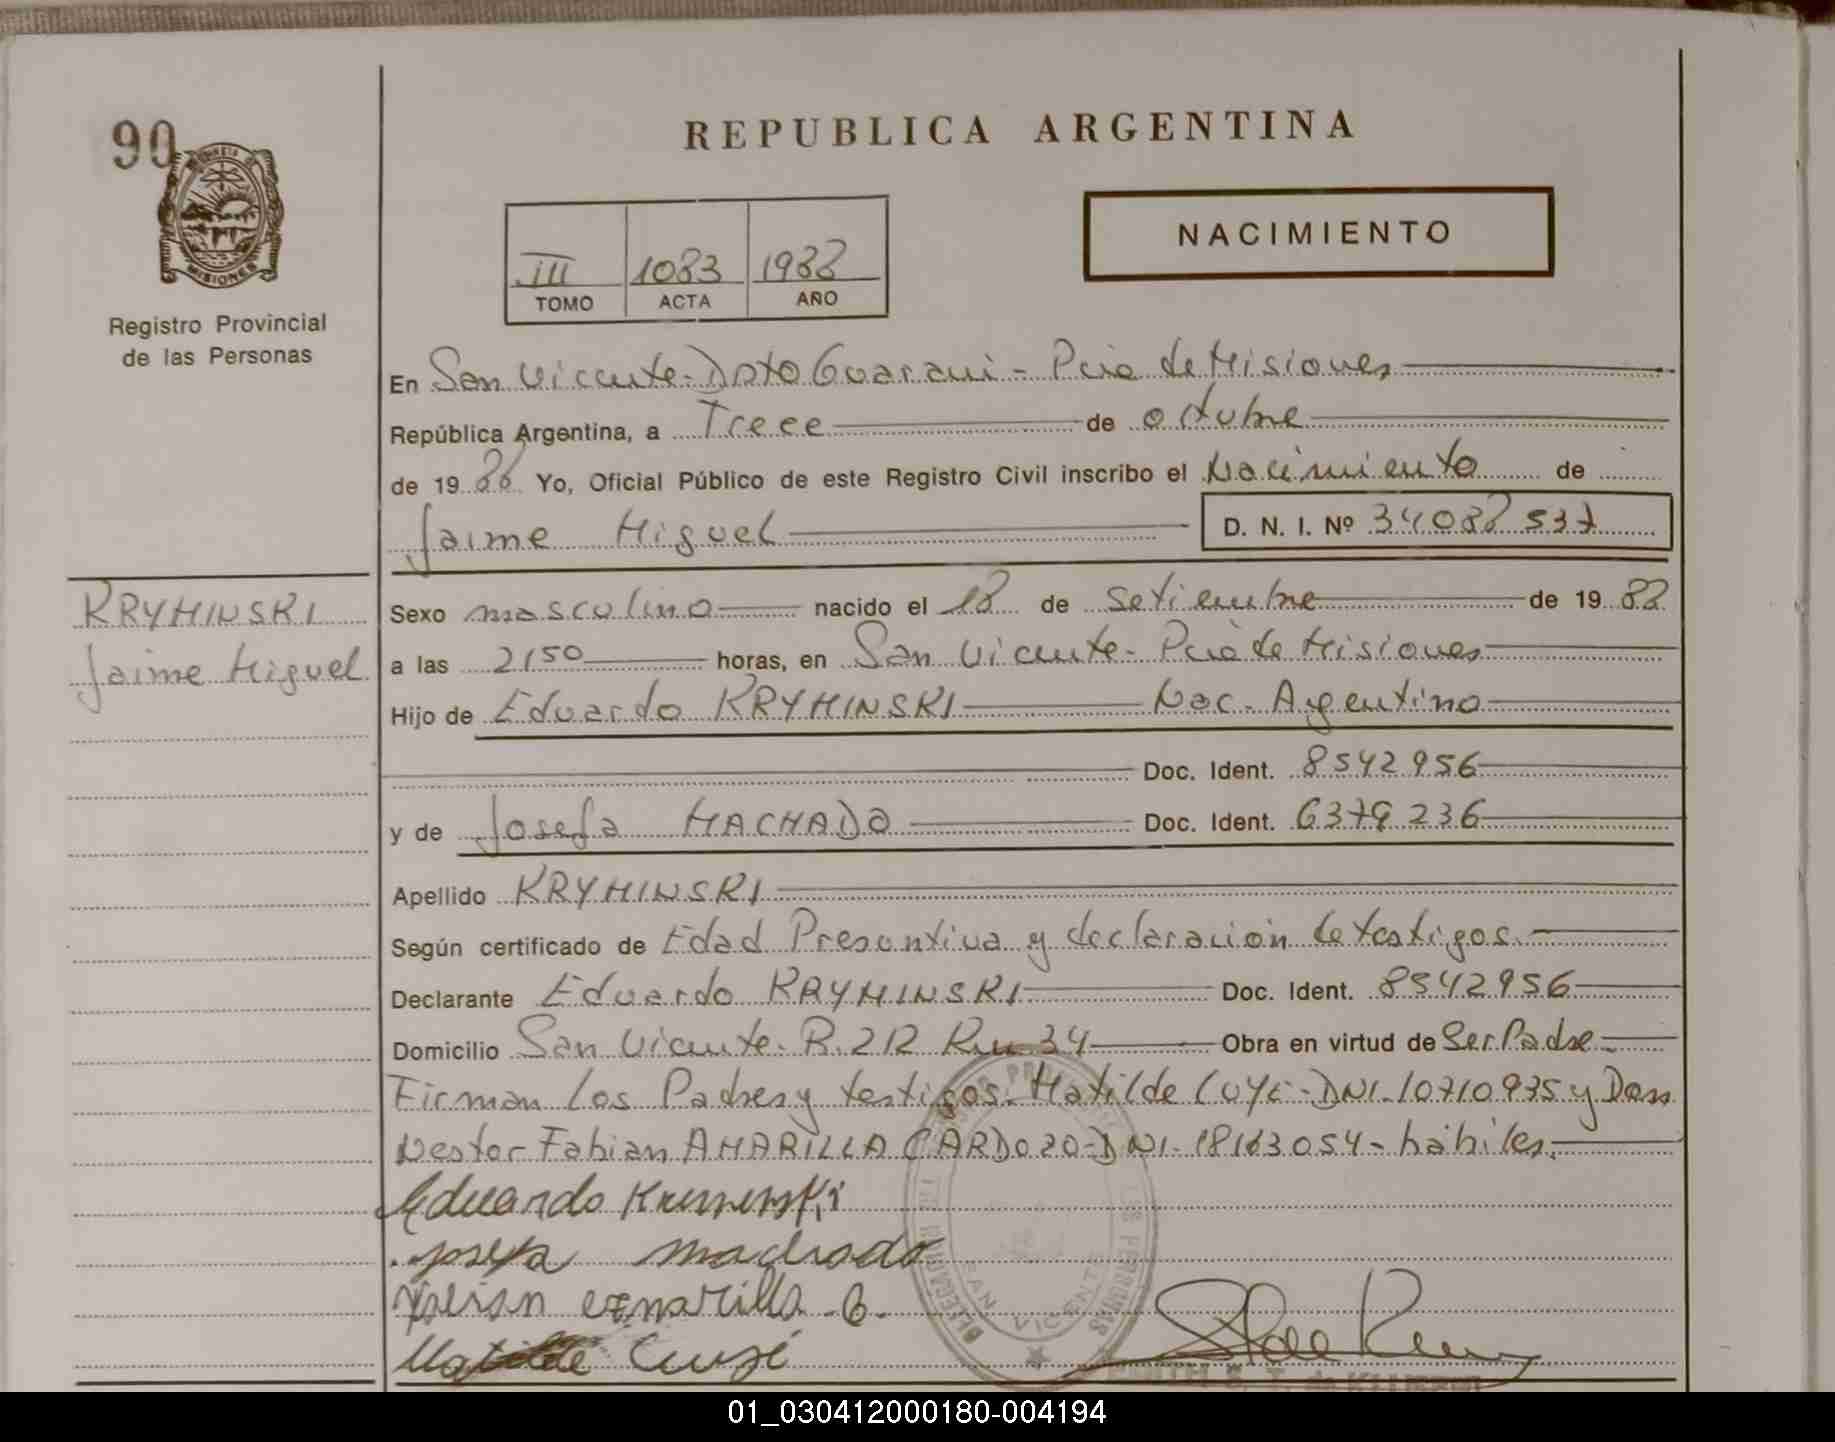 90
REPUBLICA ARGENTINA
NACIMIENTO
III 1083 1988
TOMO ACTA AÑO
MISIONES
Registro Provincial
de las Personas
En San Vicente-Dpto Guarani - Pcia de Misiones
República Argentina, a Trece de octubre
de 1988 Yo, Oficial Público de este Registro Civil inscribo el Nacimiento de
Jaime Miguel D. N. I. Nº 34088537
KRYMINSKI
Jaime Miguel
Sexo masculino nacido el 18 de setiembre de 1988
a las 2150 horas, en San Vicente- Pcia de Misiones
Hijo de Eduardo KRYMINSKI Nac. Argentino
Doc. Ident. 8542956
y de Josefa MACHADO Doc. Ident. 6379236
Apellido KRYMINSKI
Según certificado de Edad Presuntiva y declaración de testigos.
Declarante Eduardo KRYMINSKI Doc. Ident. 8542956
Domicilio San Vicente- R.212 Km 34 Obra en virtud de Ser Padre
Firman Los Padres y testigos. Matilde -DNI-10710935 y Don
Nestor Fabian AMARILLA CARDOZO-DNI-18163054- hábiles.
Eduardo
machado
Matilde
DELEGACION SAN VICENTE
01_030412000180-004194